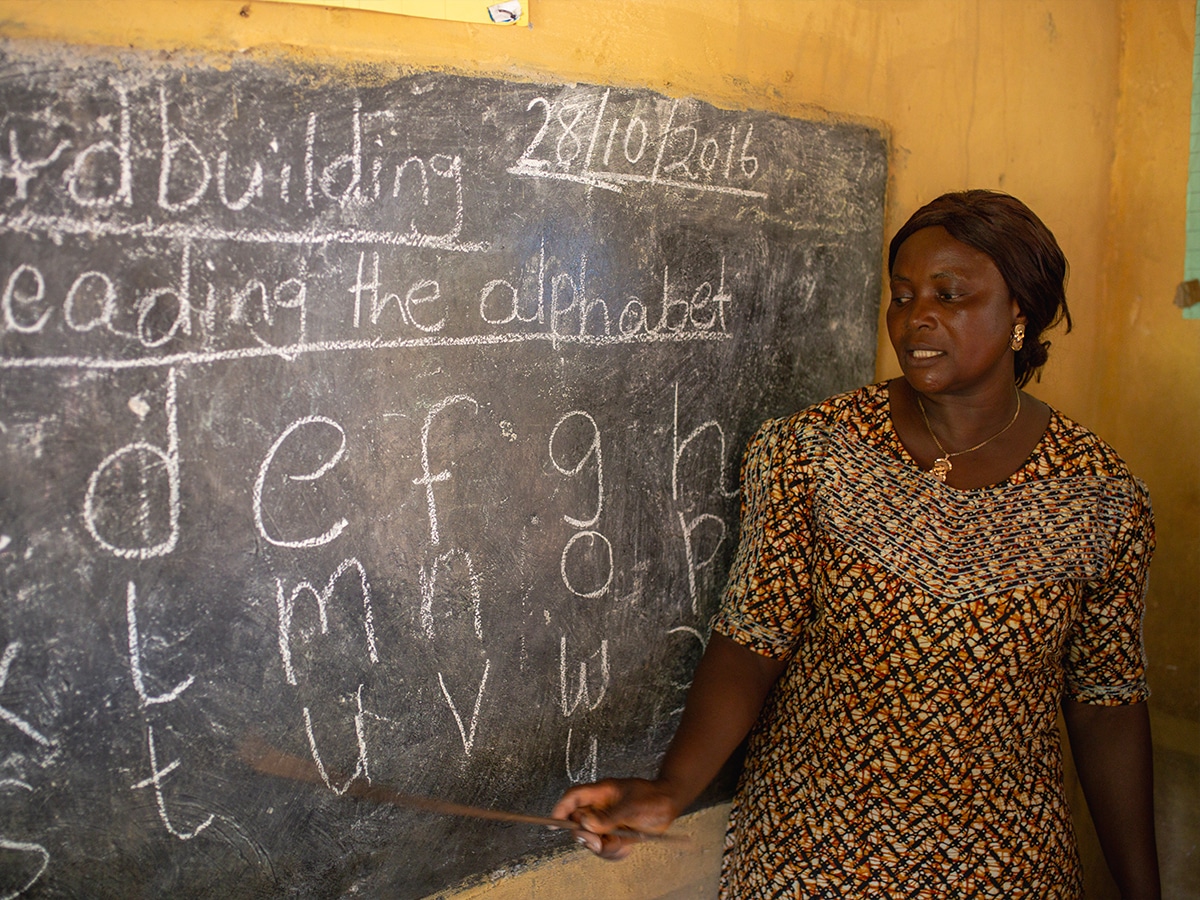 rdbuilding 28/10/2016
eading the alphabet
d e f g h
l m n o p
t u v w
y